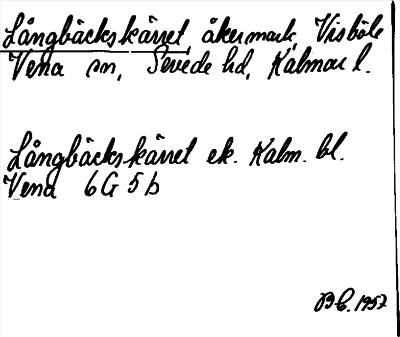 Långbäckskärret, åkermark, Visböle
Vena sn, Sevede hd, Kalmar l.
Långbäckskärret ek. Kalm. bl.
Vena 6G 5b
B C. 1957